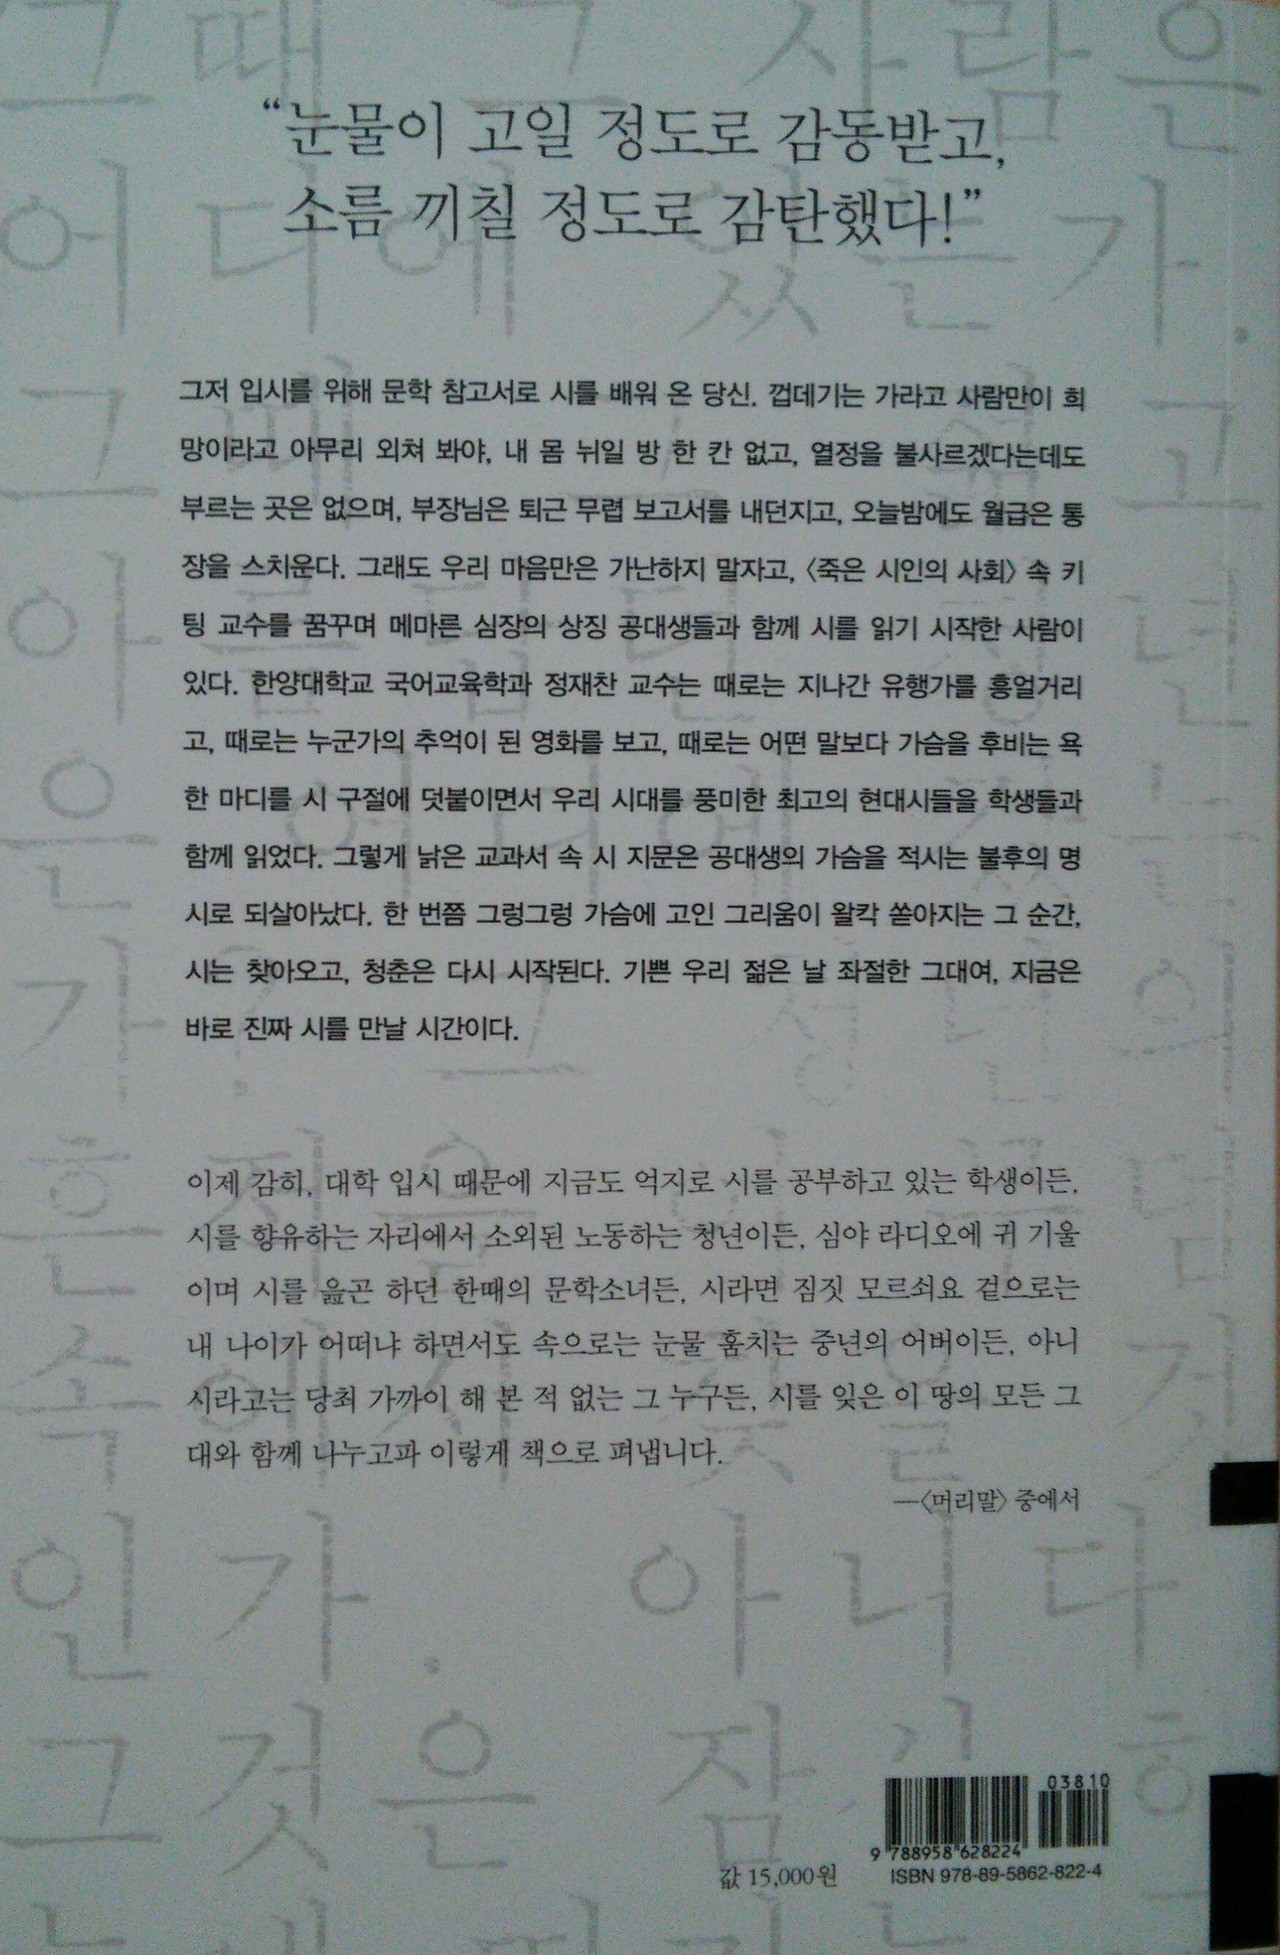 “눈물이 고일 정도로 감동받고,
소름 끼칠 정도로 감탄했다!”
그저 입시를 위해 문학 참고서로 시를 배워 온 당신. 껍데기는 가라고 사람만이 희
망이라고 아무리 외쳐 봐야, 내 몸 뉘일 방 한 칸 없고, 열정을 불사르겠다는데도
부르는 곳은 없으며, 부장님은 퇴근 무렵 보고서를 내던지고, 오늘밤에도 월급은 통
장을 스치운다. 그래도 우리 마음만은 가난하지 말자고, 〈죽은 시인의 사회〉 속 키
팅 교수를 꿈꾸며 메마른 심장의 상징 공대생들과 함께 시를 읽기 시작한 사람이
있다. 한양대학교 국어교육학과 정재찬 교수는 때로는 지나간 유행가를 흥얼거리
고, 때로는 누군가의 추억이 된 영화를 보고, 때로는 어떤 말보다 가슴을 후비는 욕
한 마디를 시 구절에 덧붙이면서 우리 시대를 풍미한 최고의 현대시들을 학생들과
함께 읽었다. 그렇게 낡은 교과서 속 시 지문은 공대생의 가슴을 적시는 불후의 명
시로 되살아났다. 한 번쯤 그렁그렁 가슴에 고인 그리움이 왈칵 쏟아지는 그 순간,
시는 찾아오고, 청춘은 다시 시작된다. 기쁜 우리 젊은 날 좌절한 그대여, 지금은
바로 진짜 시를 만날 시간이다.
이제 감히, 대학 입시 때문에 지금도 억지로 시를 공부하고 있는 학생이든,
시를 향유하는 자리에서 소외된 노동하는 청년이든, 심야 라디오에 귀 기울
이며 시를 읊곤 하던 한때의 문학소녀든, 시라면 짐짓 모르쇠요 겉으로는
내 나이가 어떠냐 하면서도 속으로는 눈물 훔치는 중년의 어버이든, 아니
시라고는 당최 가까이 해 본 적 없는 그 누구든, 시를 잊은 이 땅의 모든 그
대와 함께 나누고파 이렇게 책으로 펴냅니다.
—〈머리말〉 중에서
03810
9 788958 628224
값 15,000원
ISBN 978-89-5862-822-4